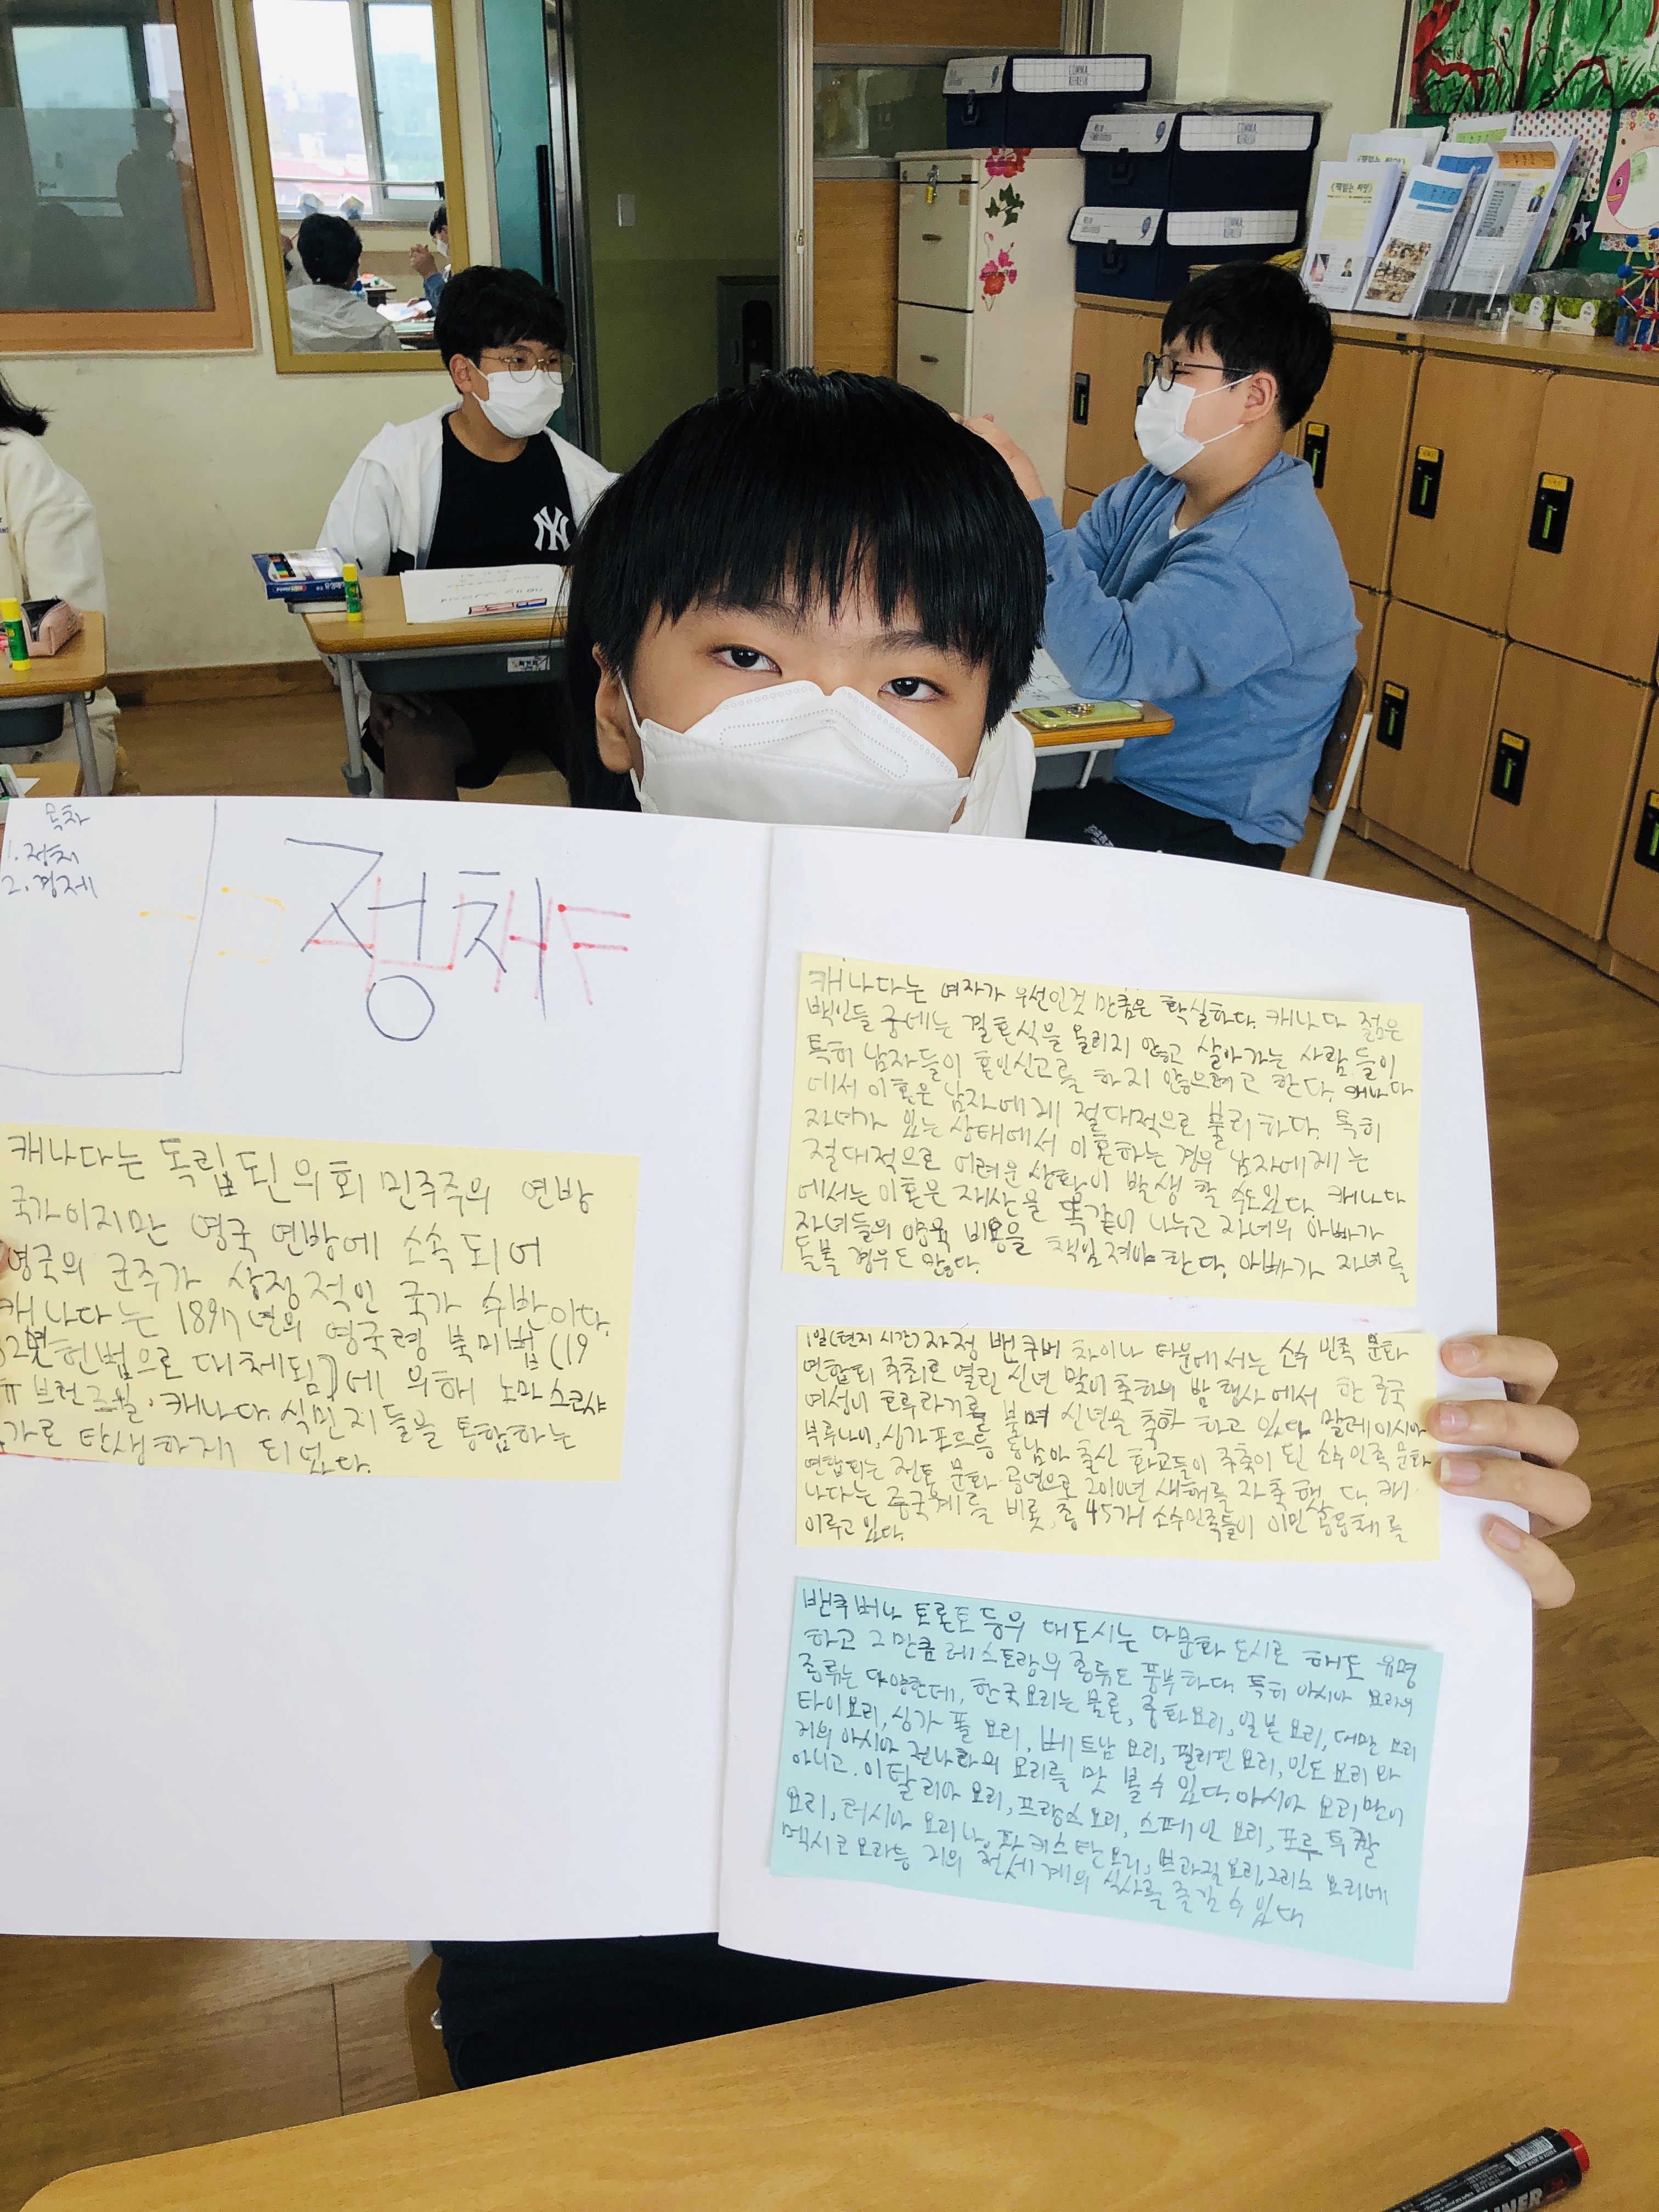 목차
1. 정치
2. 경제
정치
캐나다는 독립된 의회 민주주의 연방
국가이지만 영국 연방에 소속 되어
영국의 군주가 상징적인 국가 수반이다.
캐나다는 1897년의 영국령 북미법(19
82년 헌법으로 대체됨)에 의해 노바스코샤
뉴브런즈윅·캐나다. 식민지들을 통합하는
가로 탄생하게 되었다.
캐나다는 여자가 우선인것 만큼은 확실하다. 캐나다 젊은
백인들 중에는 결혼식을 올리지 않고 살아가는 사람들이
특히 남자들이 혼인신고를 하지 않으려고 한다. 캐나다
에서 이혼은 남자에게 절대적으로 불리하다. 특히
자녀가 있는 상태에서 이혼하는 경우 남자에게는
절대적으로 어려운 상황이 발생 할 수도있다. 캐나다
에서는 이혼은 재산을 똑같이 나누고 자녀의 아빠가
자녀들의 양육 비용을 책임져야 한다. 아빠가 자녀를
돌볼 경우도 많다.
1일(현지 시간) 자정 밴쿠버 차이나 타운에서는 소수 민족 문화
연합회 주최로 열린 신년 맞이 축하의 밤 행사에서 한 중국
여성이 호루라기를 불며 신년을 축하 하고 있다 말레이시아
부루나이, 싱가포르등 동남아 출신 화교들이 주축이 된 소수민족문화
연합회는 전통 문화 공연으로 2010년 새해를 자축했다. 캐
나다는 중국계를 비롯, 총 45개 소수민족들이 이민 공동체를
이루고 있다.
밴쿠버나 토론토 등의 대도시는 다문화 도시로 해도 유명
하고 그만큼 레스토랑의 종류도 풍부하다. 특히 아시아 요리의
종류는 다양한데, 한국요리는 물론, 중화요리, 일본 요리, 대만 요리
타이요리, 싱가폴 요리, 베트남 요리, 필리핀 요리, 인도 요리 와
거의 아시아 전나라의 요리를 맛 볼수 있다. 아시아 요리만이
아니고. 이탈리아 요리, 프랑스 요리, 스페인 요리, 포루투갈
요리, 러시아 요리나, 파키스탄요리, 브라질요리, 그리스 요리에
멕시코요리등 거의 전세계의 식사를 즐길 수 있다
COMMA
COMMA
COMMA
NY